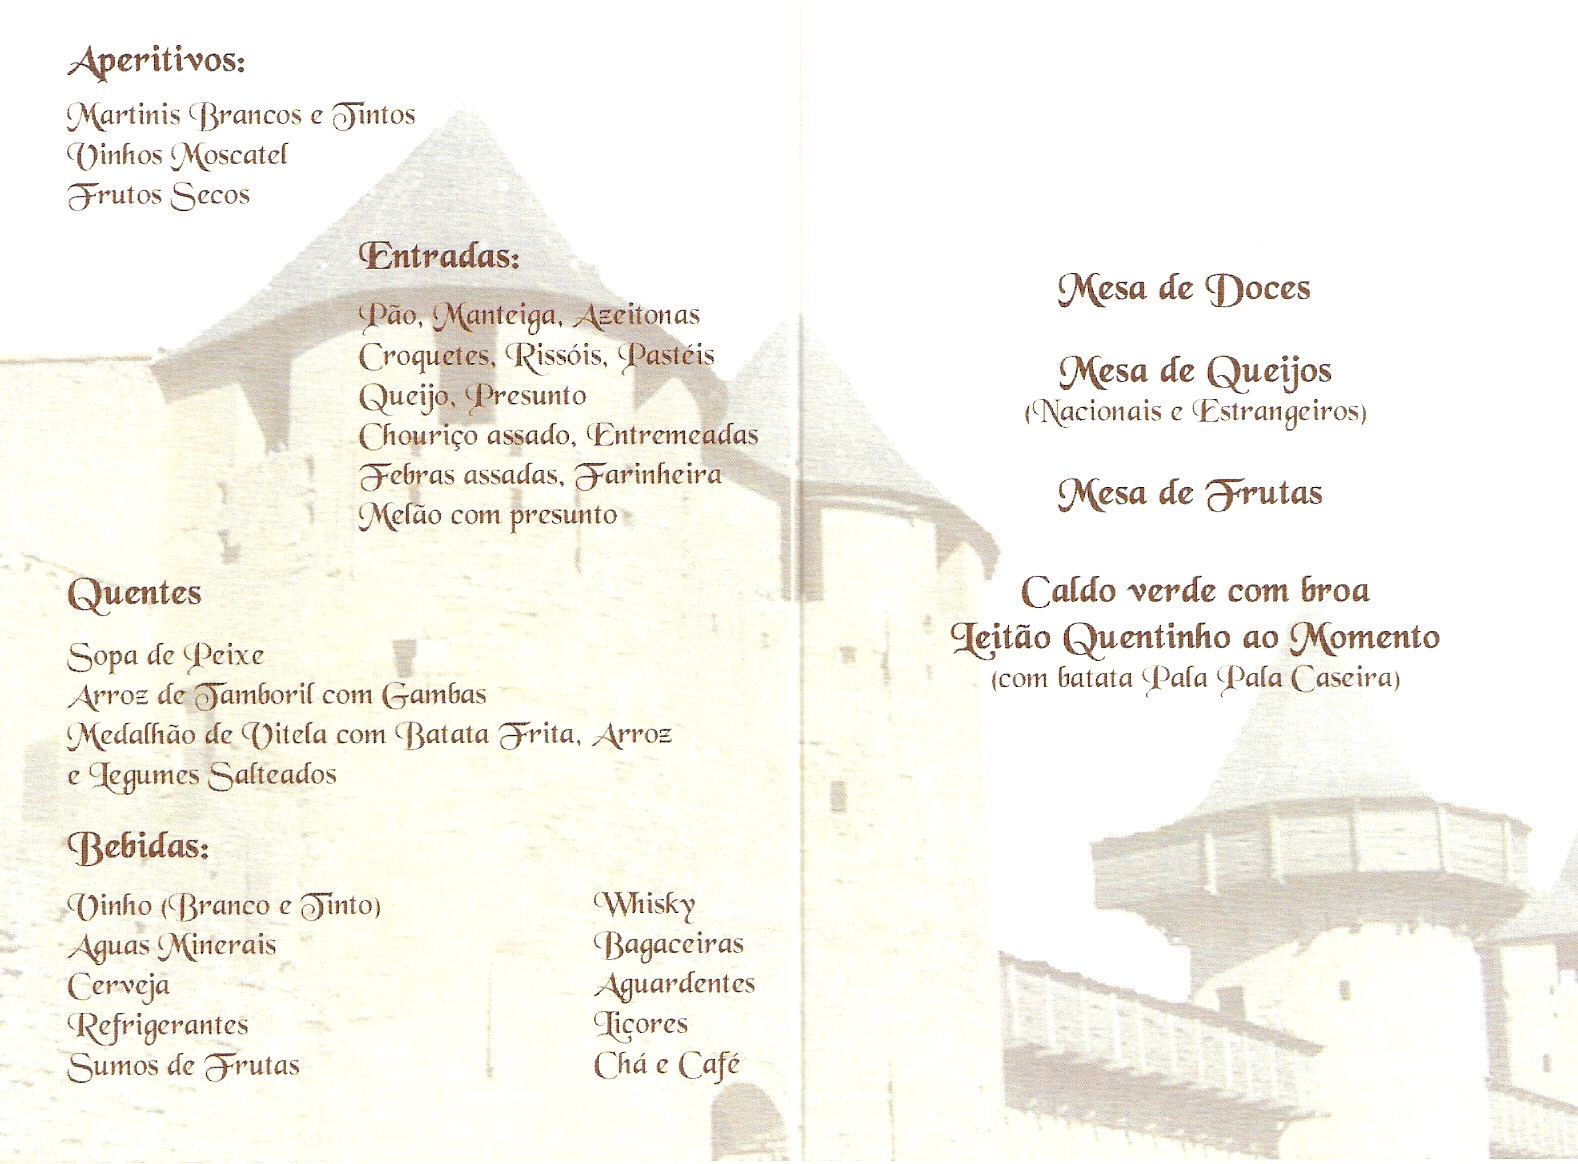 Aperitivos:
Martinis Brancos e Tintos
Vinhos Moscatel
Frutos Secos
Entradas:
Pão, Manteiga, Azeitonas
Croquetes, Rissóis, Pastéis
Queijo, Presunto
Chouriço assado, Entremeadas
Febras assadas, Farinheira
Melão com presunto
Quentes
Sopa de Peixe
Arroz de Tamboril com Gambas
Medalhão de Vitela com Batata Frita, Arroz
e Legumes Salteados
Bebidas:
Vinho (Branco e Tinto)
Aguas Minerais
Cerveja
Refrigerantes
Sumos de Frutas
Whisky
Bagaceiras
Aguardentes
Liçores
Chá e Café
Mesa de Doces
Mesa de Queijos
(Nacionais e Estrangeiros)
Mesa de Frutas
Caldo verde com broa
Leitão Quentinho ao Momento
(com batata Pala Pala Caseira)